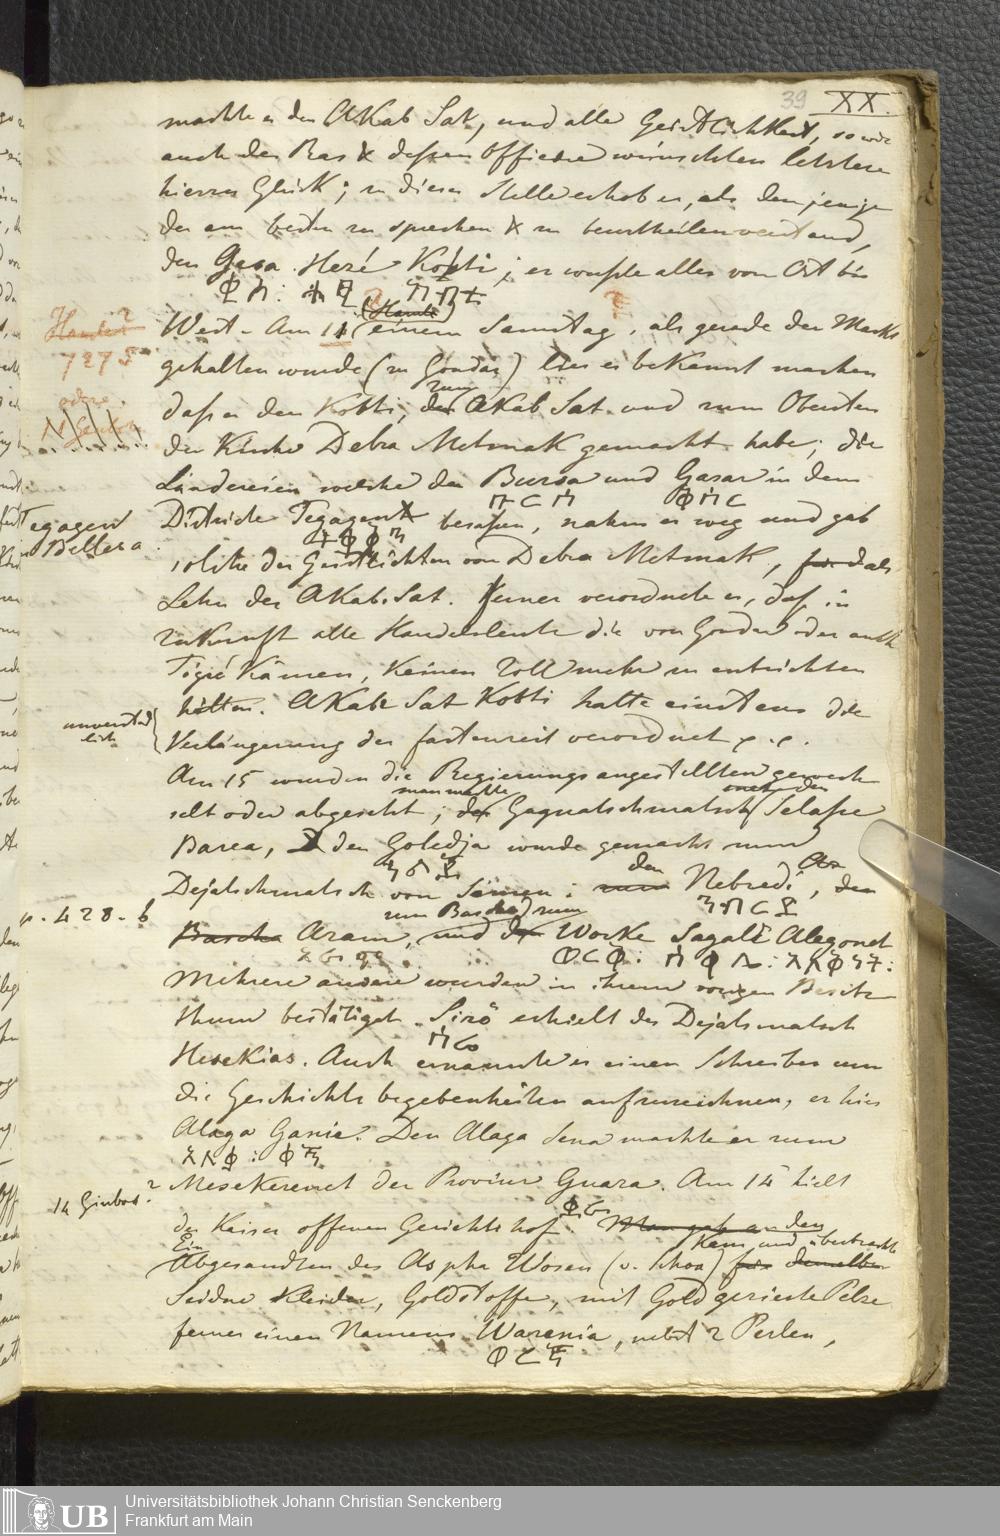 39 XX.
machte er den AKab Sat, und alle Geistlichkeit, so wie
auch der Ras & dessen Officiere wünschten letztere
hierzu Glück; zu dieser Stelle erhob er, als demjenigen
der am besten zu sprechen & zu beurtheilen verstand,
den Gesa Hezé Kobti; er wusste alles von Ost bis
(Hamle)
West. Am 11 einem Samstag, als gerade der Markt
1275
oder
gehalten wurde (zu Gondar) lies er bekannt machen
zum
dass er den Kobti, AKab Sat. und zum Obersten
der Kirche Debra Metmak gemacht habe; die
Ländereien welche der Bursa und Gasar in dem
በርሳ ቀሳር
Tegagent
Bellesa
Districte Tegagent besassen, nahm er weg und gab
solche den Geistlichten von Debra Metmak, für als
Lehn des AKab. Sat. Ferner verordnete er, dass in
zukunft alle Handelsleute die von Gondar oder auch
Tigré kämen, keinen Zoll mehr zu entrichten
hätten. AKab Sat Kobti hatte einstens die
unverständlich
Verlängerung der fastenzeit verordnet
Am 15 wurden die Regierungsangestellten gewech
man machte
selt oder abgesetzt; den Gaqnatschmatsch Selasse
Barea, den Goledja wurde gemacht zum
Dejatschmatsch von Simen; zum den Nebredi, den
p. 428. b
zum Bascha zum
Bascha Aram, und der Worke Sagalé Alegonet
Mehrere andere wurden in ihrem vorigen Besitz
thum bestätiget. Siré erhielt der Dejatsmatsch
ሲሬ
Hesekias. Auch ernannte er einen Schreiber um
die Geschichts begebenheiten aufzuzeichnen, er hies
Alaqa Ganie. Den Alaqa Sena machte er zum
14 Ginbot?
Mesekerenet der Provinz Guara. Am 14 hielt
der Kaiser offenen Gerichtshof. Man gab an den
Ein kam und überbrachte
Abgesandten des Aspha Wosen (v. Schoa) für denselben
Seidne Kleider, Goldstoffe, mit Gold gezierte Pelze
ferner einen Namens Warenia, nebst 2 Perlen,
Universitätsbibliothek Johann Christian Senckenberg
Frankfurt am Main
UB